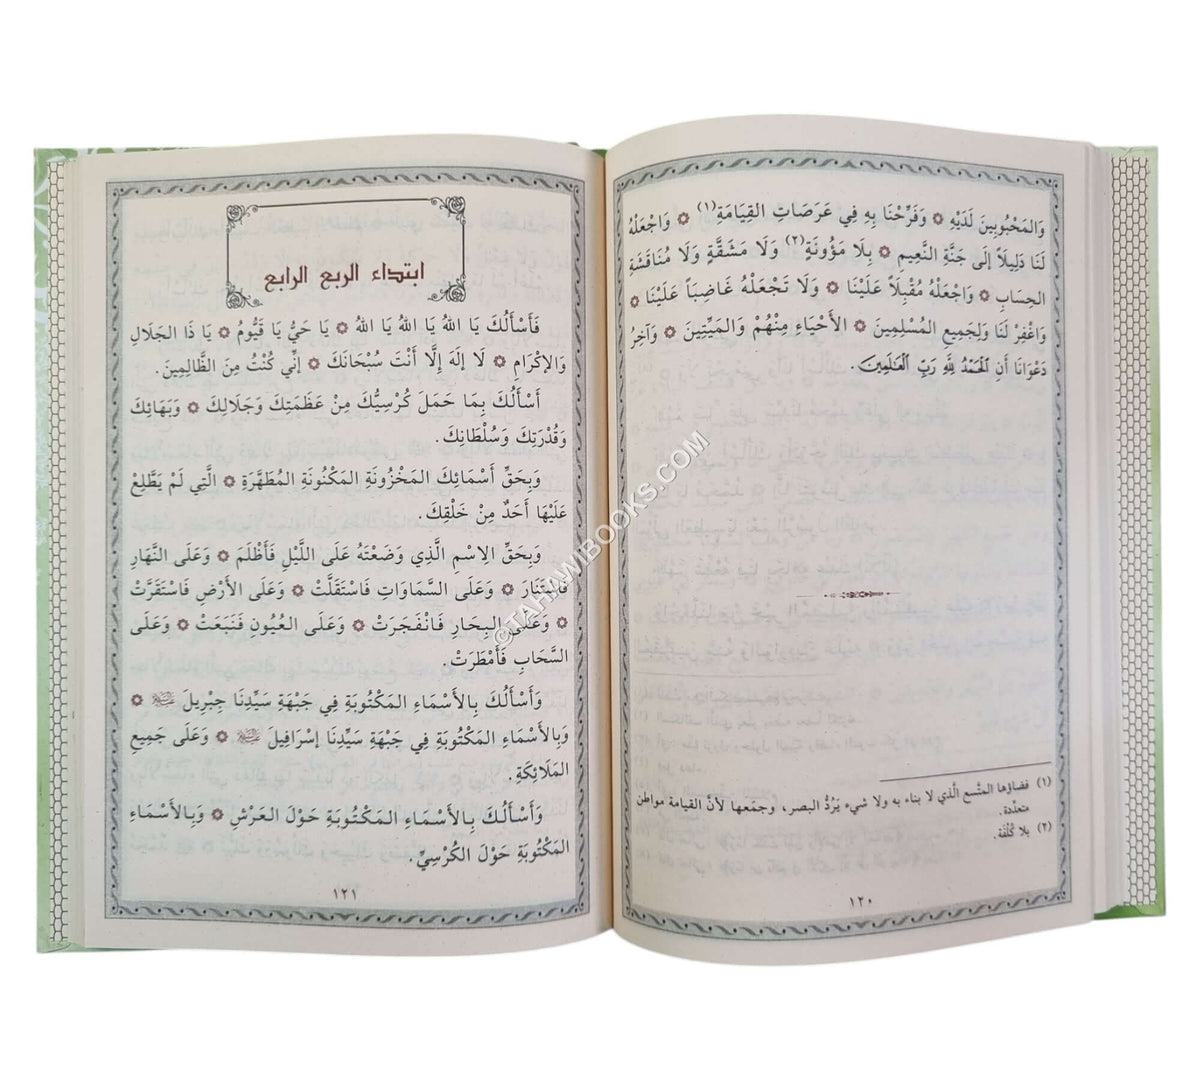 وَالمَحْبُوبِينَ لَدَيْهِ ۞ وَفَرِّحْنَا بِهِ فِي عَرَصَاتِ القِيَامَةِ(١) ۞ وَاجْعَلْهُ
لَنَا دَلِيلاً إِلَى جَنَّةِ النَّعِيمِ ۞ بِلَا مَؤُونَةٍ(٢) وَلَا مَشَقَّةٍ وَلَا مُنَاقَشَةِ
الحِسَابِ ۞ وَاجْعَلْهُ مُقْبِلاً عَلَيْنَا ۞ وَلَا تَجْعَلْهُ غَاضِباً عَلَيْنَا ۞
وَاغْفِرْ لَنَا وَلِجَمِيعِ المُسْلِمِينَ ۞ الأَحْيَاءِ مِنْهُمْ وَالمَيِّتِينَ ۞ وَآخِرُ
دَعْوَانَا أَنِ الحَمْدُ لِلَّهِ رَبِّ العَالَمِينَ.
(١) فضاؤها المتَّسع الَّذي لا بناء به ولا شيء يَرُدُّ البصر، وجمَعها لأنَّ القيامة مواطن
متعدِّدة.
(٢) بلا كُلْفَة.
١٢٠
ابتداء الربع الرابع
فَأَسْأَلُكَ يَا اللهُ يَا اللهُ يَا اللهُ ۞ يَا حَيُّ يَا قَيُّومُ ۞ يَا ذَا الجَلَالِ
وَالإِكْرَامِ ۞ لَا إِلهَ إِلَّا أَنْتَ سُبْحَانَكَ ۞ إِنِّي كُنْتُ مِنَ الظَّالِمِينَ.
أَسْأَلُكَ بِمَا حَمَلَ كُرْسِيُّكَ مِنْ عَظَمَتِكَ وَجَلَالِكَ ۞ وَبَهَائِكَ
وَقُدْرَتِكَ وَسُلْطَانِكَ.
وَبِحَقِّ أَسْمَائِكَ المَخْزُونَةِ المَكْنُونَةِ المُطَهَّرَةِ ۞ الَّتِي لَمْ يَطَّلِعْ
عَلَيْهَا أَحَدٌ مِنْ خَلْقِكَ.
وَبِحَقِّ الاِسْمِ الَّذِي وَضَعْتَهُ عَلَى اللَّيْلِ فَأَظْلَمَ ۞ وَعَلَى النَّهَارِ
فَاسْتَنَارَ ۞ وَعَلَى السَّمَاوَاتِ فَاسْتَقَلَّتْ ۞ وَعَلَى الأَرْضِ فَاسْتَقَرَّتْ
۞ وَعَلَى البِحَارِ فَانْفَجَرَتْ ۞ وَعَلَى العُيُونِ فَنَبَعَتْ ۞ وَعَلَى
السَّحَابِ فَأَمْطَرَتْ.
وَأَسْأَلُكَ بِالأَسْمَاءِ المَكْتُوبَةِ فِي جَبْهَةِ سَيِّدِنَا جِبْرِيلَ ۞
وَبِالأَسْمَاءِ المَكْتُوبَةِ فِي جَبْهَةِ سَيِّدِنَا إِسْرَافِيلَ ۞ وَعَلَى جَمِيعِ
المَلَائِكَةِ.
وَأَسْأَلُكَ بِالأَسْمَاءِ المَكْتُوبَةِ حَوْلَ العَرْشِ ۞ وَبِالأَسْمَاءِ
المَكْتُوبَةِ حَوْلَ الكُرْسِيِّ.
١٢١
©TAHAWIBOOKS.COM